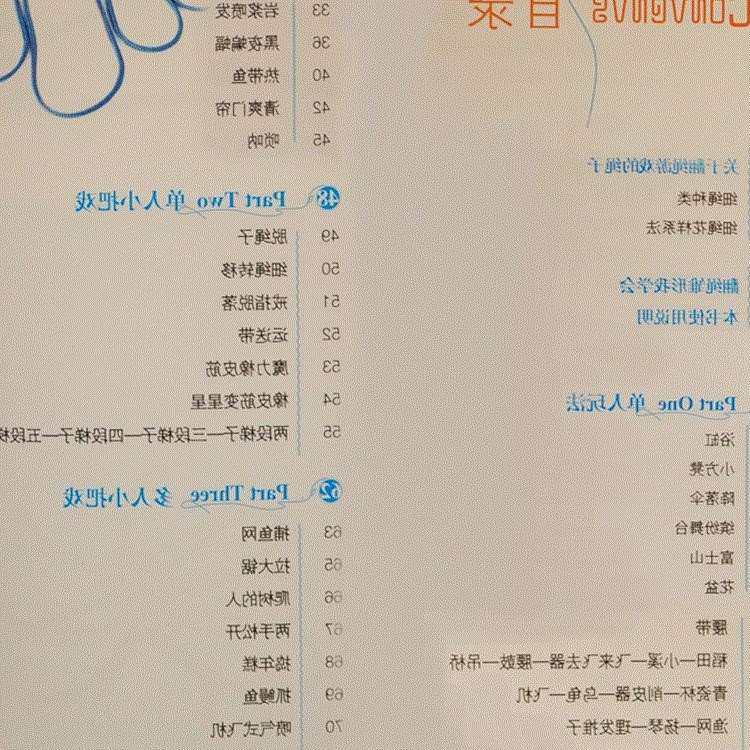 Contents 目录
关于翻绳游戏的绳子
细绳种类
细绳花样系法
翻绳雏形我学会
本书使用说明
Part One 单人玩法
浴缸
小方凳
降落伞
缤纷舞台
富士山
花盆
腰带
稻田—小溪—飞来飞去器—腰鼓—吊桥
青瓷杯—削皮器—乌龟—飞机
渔网—扬琴—理发推子
33 岩浆喷发
36 黑夜蝙蝠
40 热带鱼
42 清爽门帘
45 唢呐
48 Part Two 单人小把戏
49 脱绳子
50 细绳转移
51 戒指脱落
52 运送带
53 魔力橡皮筋
54 橡皮筋变星星
55 两段梯子—三段梯子—四段梯子—五段梯
62 Part Three 多人小把戏
63 捕鱼网
65 拉大锯
66 爬树的人
67 两手松开
68 捣年糕
69 抓鳗鱼
70 喷气式飞机